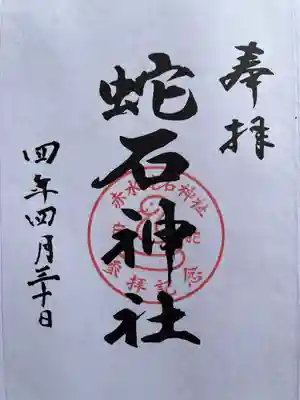 奉拝
蛇石神社
四年四月三十日
赤水蛇石神社
参拝記念